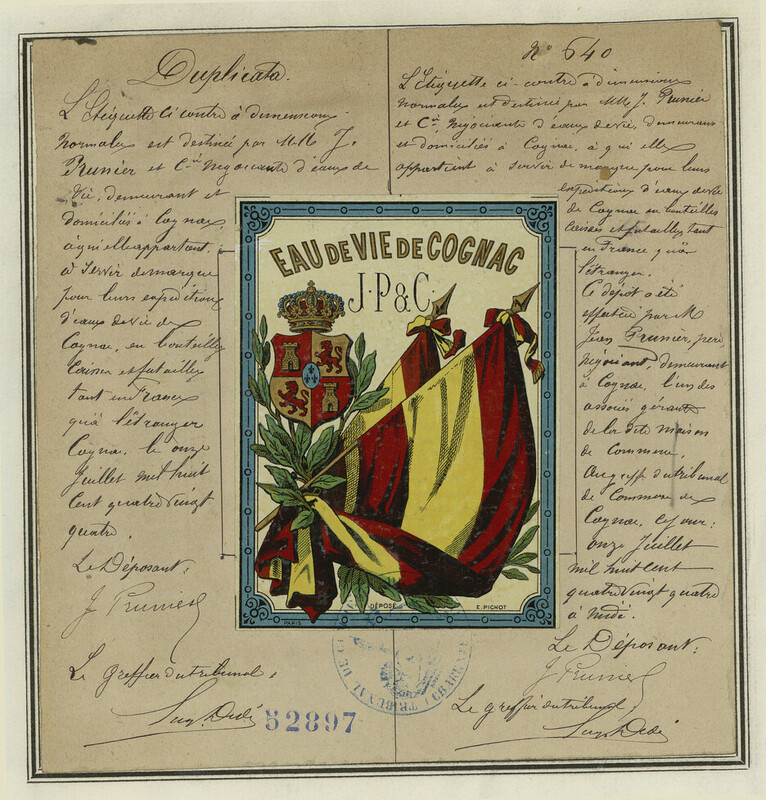 Duplicata.
L'Etiquette ci contre à dimensions
normales est destiné par MM J.
Prunier et Cie négociants d'eaux de
Vie, demeurant et
domiciliés à Cognac,
à qui elle appartient,
à Servir de marque
pour leurs expéditions
d'eaux de vie de
Cognac, en bouteilles
Caisses et futailles
tant en France
qu'à l'étranger
Cognac, le onze
Juillet mil huit
Cent quatre vingt
quatre.
Le Déposant:
J Prunier
Le greffier du tribunal,
52897
EAU DE VIE DE COGNAC
J·P&C.
DÉPOSÉ
E. PICHOT
PARIS
TRIBUNAL DE
No 640
L'Etiquette ci-contre à dimensions
normales est destiné par MM J. Prunier
et Cie, négociants d'eaux de vie, demeurant
et domiciliés à Cognac, à qui elle
appartient à servir de marque pour leurs
expéditions d'eaux de vie
de Cognac en bouteilles
Caisses et futailles tant
en France qu'à
l'étranger.
Ce dépôt a été
effectué par M
Jean Prunier, père
négociant, demeurant
à Cognac, l'un des
associés gérants
de la dite maison
de Commerce,
Au greffe du tribunal
de Commerce de
Cognac, ce jour:
onze Juillet
mil huit cent
quatre vingt quatre
à midi.
Le Déposant:
J Prunier
Le greffier du tribunal,